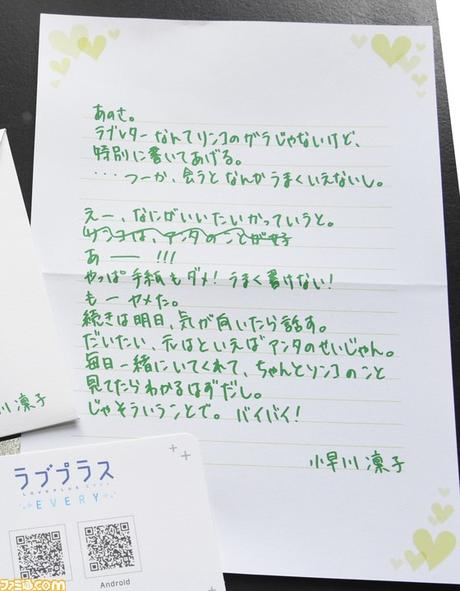 あのさ。
ラブレターなんてリンコのガラじゃないけど、
特別に書いてあげる。
・・・つーか、会うとなんかうまくいえないし。
えー、なにがいいたいかっていうと。
リンコは、アンタのことが好
あ―― !!!
やっぱ手紙もダメ! うまく書けない!
もーヤメた。
続きは明日、気が向いたら話す。
だいたい、元はといえばアンタのせいじゃん。
毎日一緒にいてくれて、ちゃんとリンコのこと
見てたらわかるはずだし。
じゃそういうことで。バイバイ!
小早川 凛子
川 凛子
ラブプラス
LOVEPLUS EVERY
EVERY
Android
ファミ通.com